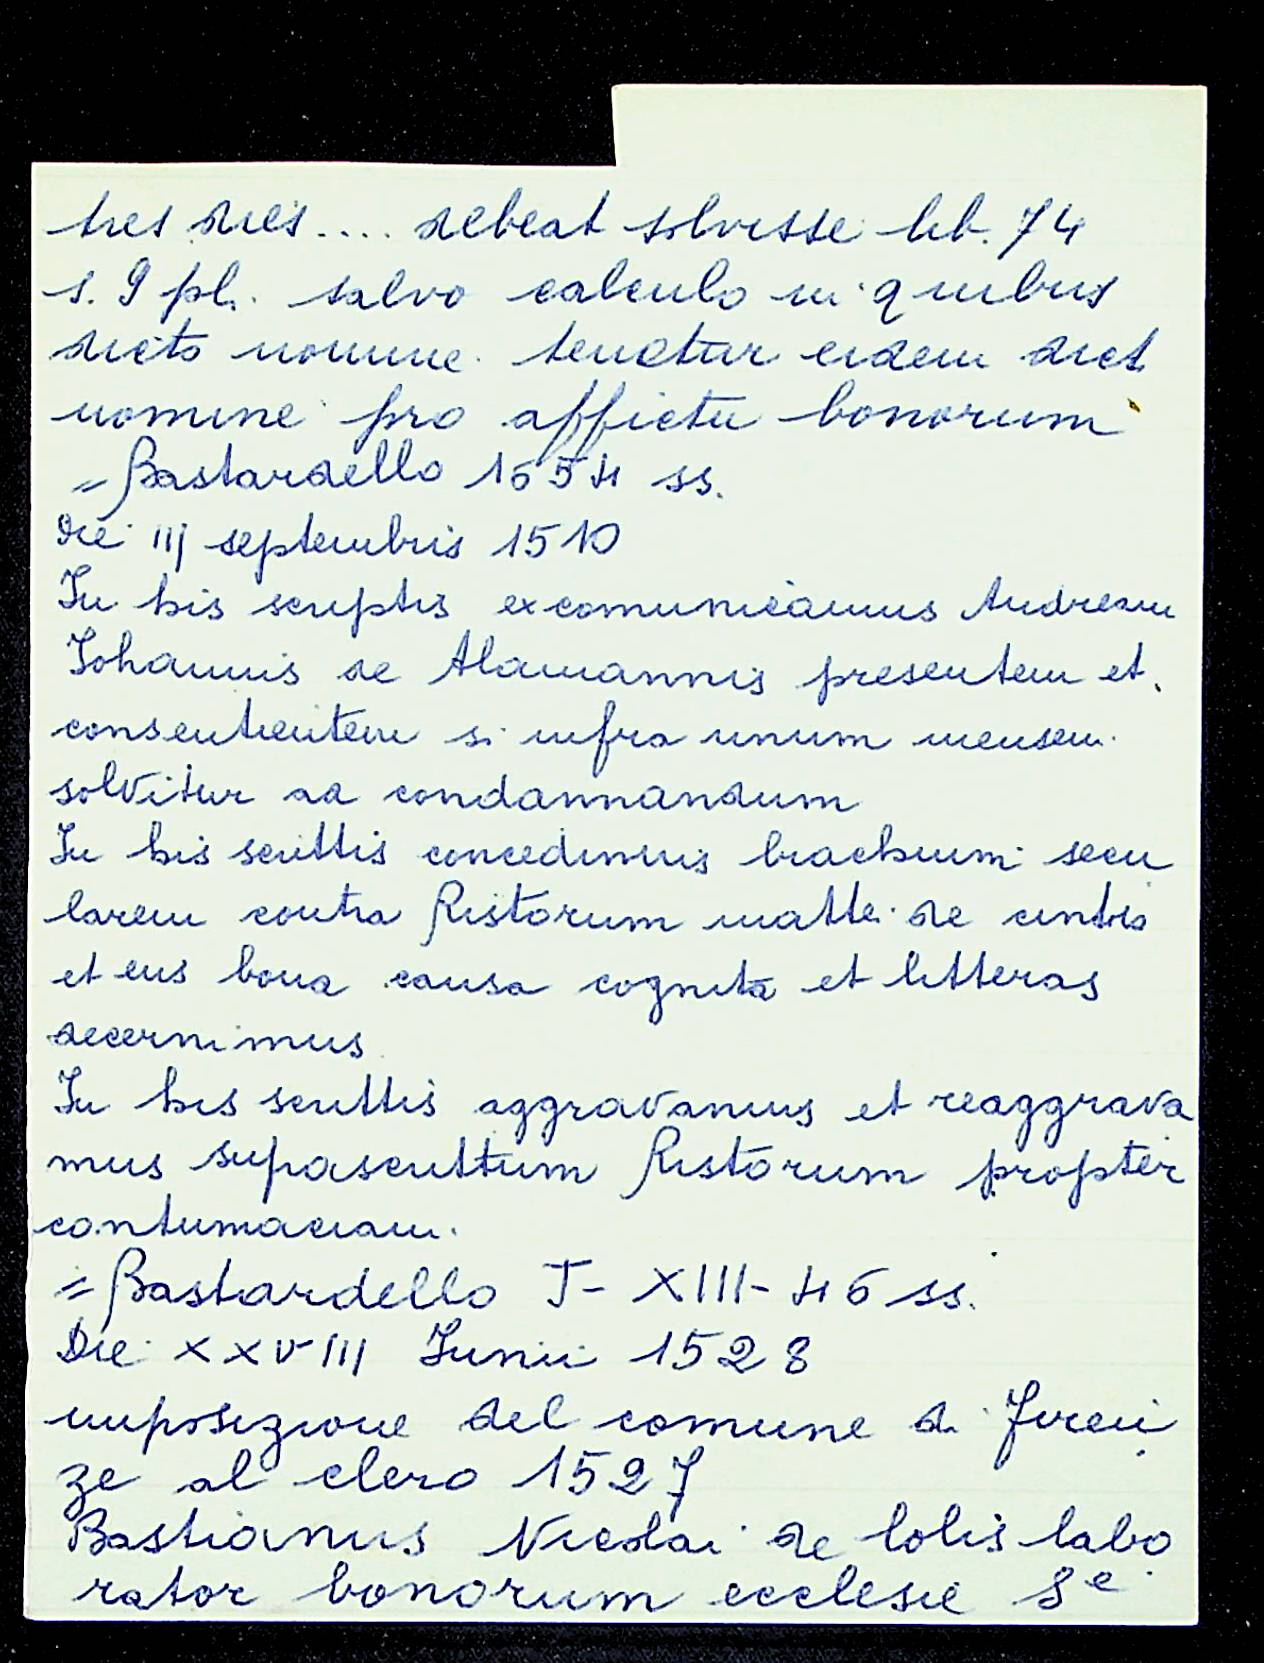 tres dies.... debeat solvisse lib. 74
s. 9 pl. salvo calculo in quibus
dicto nomine tenetur eidem dict
nomine pro affictu bonorum
= Bastardello 1654 ss.
Die iij septembris 1510
In his scriptis excomunicamus Andream
Johannis de Alamannis presentem et
consentientem si infra unum mensem
solvitur ad condannandum
In his scrittis concedimus brachium secu
larem contra Ristorum mattei de
et eius bona causa cognita et litteras
decernimus
In his scrittis aggravamus et reaggrava
mus suprascrittum Ristorum propter
contumaciam.
= Bastardello T- XIII- 46 ss.
Die XXVIII Junii 1528
imposizione del comune di Firen
ze al clero 1527
Bastianus Nicolai de lolis labo
rator bonorum ecclesie Se